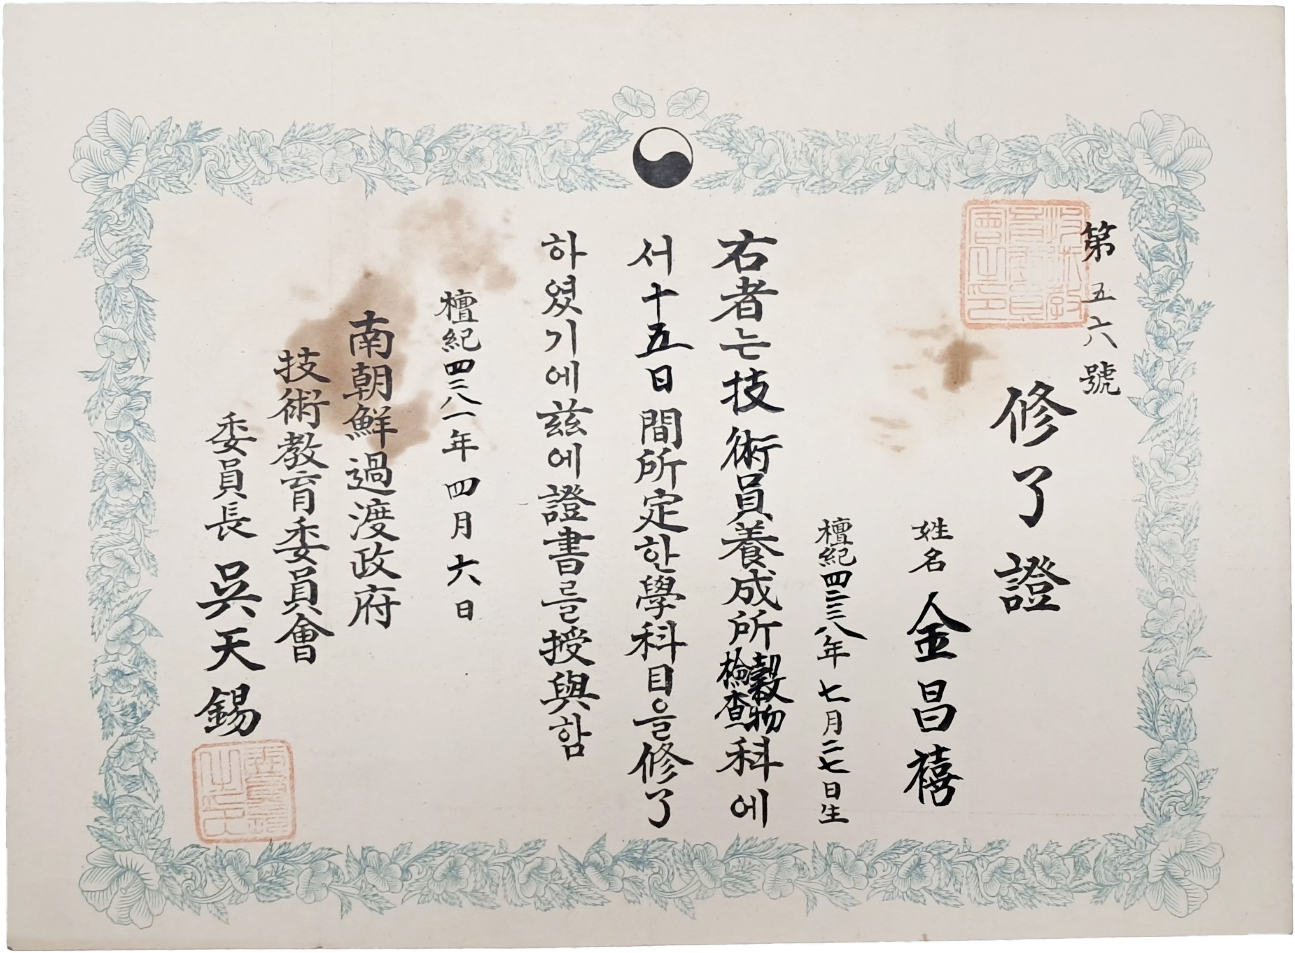 第五六號
修了證
姓名 金昌禧
檀紀四二三八年七月二七日生
右者는技術員養成所穀物檢查科에
서十五日間所定한學科目을修了
하였기에玆에證書를授與함
檀紀四二八一年四月六日
南朝鮮過渡政府
技術教育委員會
委員長 吳天錫